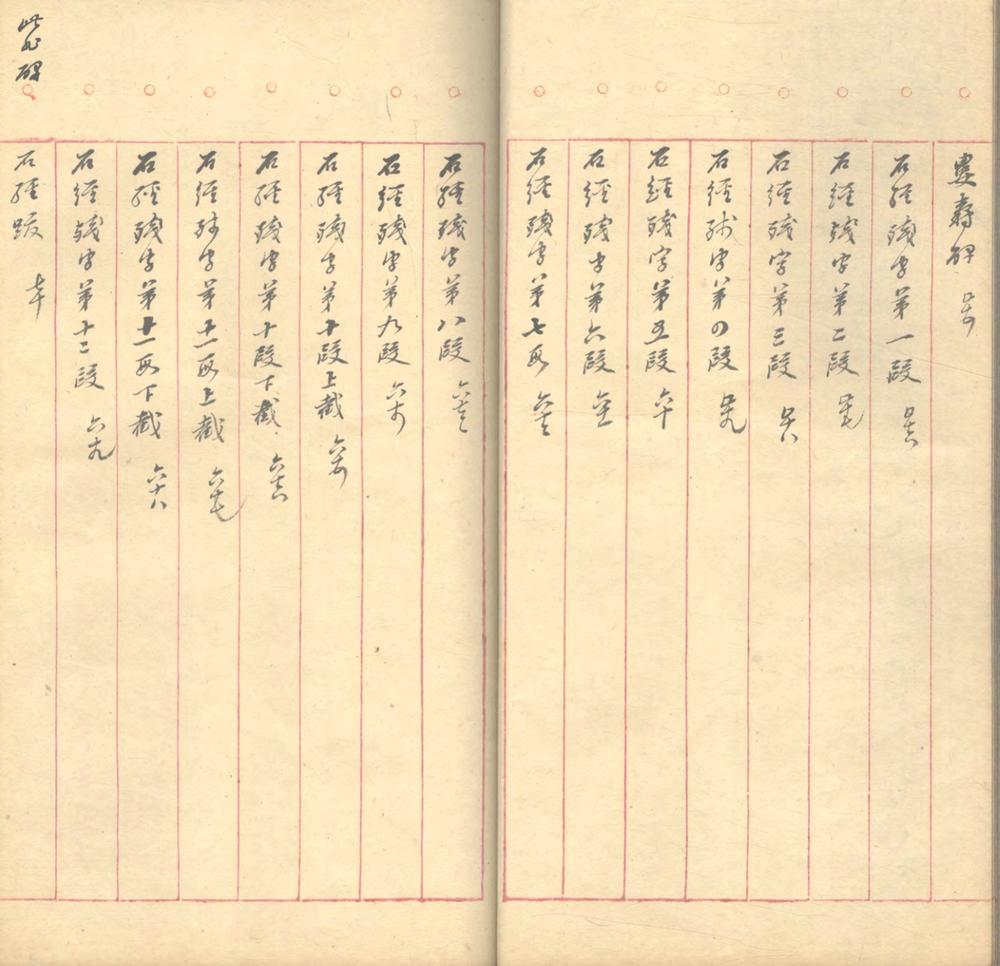 婁壽碑 五十五
石經殘字第一段 五十六
石經殘字第二段 五十七
石經殘字第三段 五十八
石經殘字第四段 五十九
石經殘字第五段 六十
石經殘字第六段 六十一
石經殘字第七段 六十二
石經殘字第八段 六十三
石經殘字第九段 六十四
石經殘字第十段上截 六十五
石經殘字第十段下截 六十六
石經殘字第十一段上截 六十七
石經殘字第十一段下截 六十八
石經殘字第十二段 六十九
此非碑
石經跋 七十